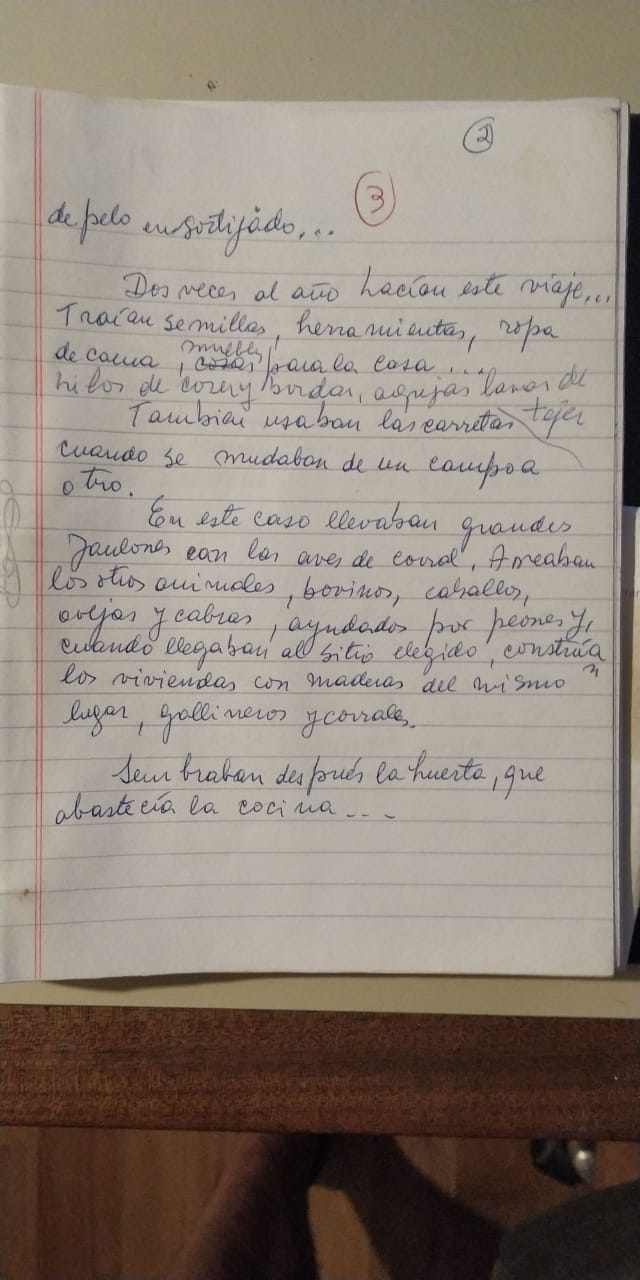 2
3
de pelo ensortijado,...
Dos veces al año hacían este viaje...
Traían semillas, herramientas, ropa
muebles
de cama, cosas para la casa...
hilos de coser y bordar, agujas lanas de
tejer
También usaban las carretas
cuando se mudaban de un campo a
otro.
En este caso llevaban grandes
Jaulones con las aves de corral, Arreaban
los otros animales, bovinos, caballos,
ovejas y cabras, ayudados por peones y,
cuando llegaban al sitio elegido, construía
n
las viviendas con maderas del mismo
lugar, gallineros y corrales.
Sembraban después la huerta, que
abastecía la cocina....